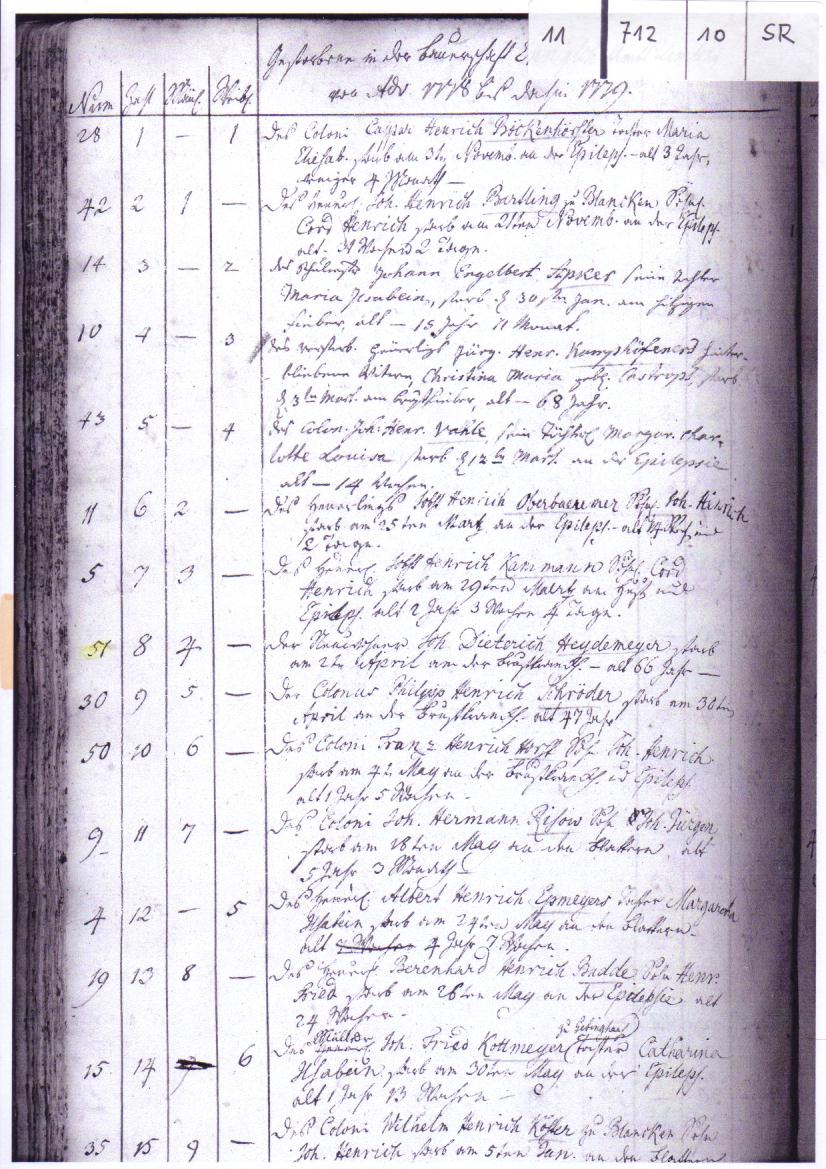 11 712 10 SR
Gestorbene in der Bauerschaft E
von Adv. 1778 bis dahin 1779.
Num Zahl Männl. Weibl.
28 1 — 1 Des Coloni Caspar Henrich Böckenhörster Tochter Maria
Elisab. starb am 3ten Novemb. an der Epileps. - alt 3 Jahr,
weniger 4 Monath —
42 2 1 — Des Heuerl. Joh. Henrich Bartling zu Blancken Sohn
Cord Henrich starb am 21ten Novemb. an der Epileps.
alt - Wochen 2 Tage.
14 3 — 2 des Johann Engelbert seine Tochter
Maria Ilsabein, starb d 30sten Jan. am hitzigen
Fieber, alt — 15 Jahr 11 Monat.
10 4 — 3 des verstorb. Heuerlings Jürg. Henr. Kamphöfeners hinter-
bliebene Witwe, Christina Maria geb. Castrops, starb
d 3ten Mart. am Brustfieber, alt — 68 Jahr.
43 5 — 4 des Colon. Joh: Henr. Vahle, sein Töchterl. Margar. Char-
lotte Louisa starb d 12ten Mart. an der Epilepsie
alt — 14 Wochen.
11 6 2 — Des Heuerlings Jobst Henrich Oberbaeremer Sohn Joh. Hinrich
starb am 25ten Martz an der Epileps. - alt
12 Tage.
5 7 3 — Des Heuerl. Jobst Henrich Kammann Sohn Cord
Henrich starb am 29ten Maertz am und
Epileps. alt 2 Jahr 3 Wochen 4 Tage.
51 8 4 — Der Neuwohner Joh. Dieterich Heydemeyer starb
am 2ten April an der Brustkranckh. — alt 66 Jahr —
30 9 5 — Der Colonus Philipp Henrich Schröder starb am 30ten
April an der Brustkranckh. alt 47 Jahr
50 10 6 — Des Coloni Franz Henrich Horst Sohn Joh. Henrich
starb am 4ten May an der Brustkranckh. u Epileps.
alt 1 Jahr 5 Wochen -
9 11 7 — Des Coloni Joh. Hermann Risow Sohn Joh. Jürgen
starb am 18ten May an den Blattern alt
5 Jahr 3 Monath —
4 12 — 5 Des Heuerl. Albert Henrich Epmeyers Tochter Margaretha
Ilsabein starb am 24ten May an den Blattern -
alt 4 Jahr 7 Wochen.
19 13 8 — Des Heuerl. Berenhard Henrich Budde Sohn Henr.
Fried starb am 26ten May an der Epilepsie alt
24 Wochen -
15 14 6 Des Joh. Fried Kottmeyer Tochter Catharina
Ilsabein starb am 30ten May an der Epileps.
alt 1 Jahr 13 Wochen -
35 15 9 — Des Coloni Wilhelm Henrich Köster zu Blancken Sohn
Joh. Henrich starb am 5ten Jun. an den Blattern